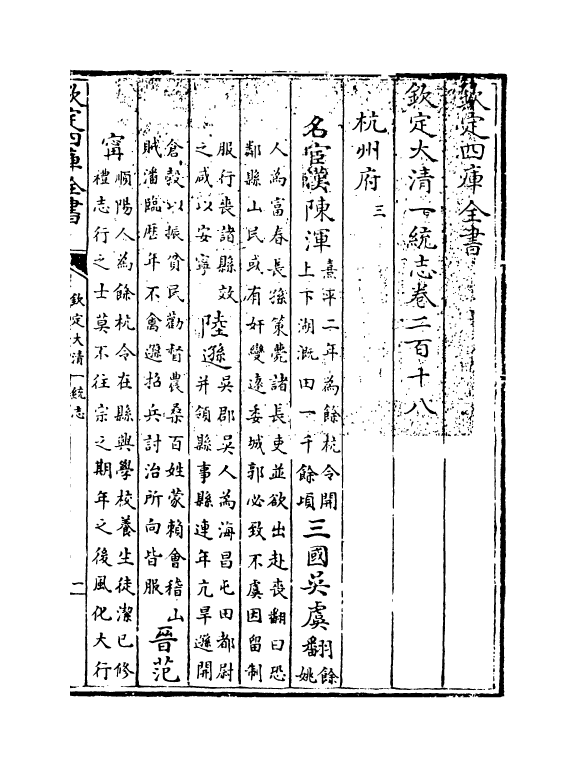 欽定四庫全書
欽定大清一統志卷二百十八
杭州府三
名宦漢陳渾熹平二年為餘杭令開
上下湖溉田一千餘頃三國吳虞翻餘
姚
人為富春長孫策薨諸長吏並欲出赴喪翻曰恐
鄰縣山民或有奸變遠委城郭必致不虞因留制
服行喪諸縣效
之咸以安寧陸遜吳郡吳人為海昌屯田都尉
并領縣事縣連年亢旱遜開
倉榖以振貧民勸督農桑百姓蒙賴會稽山
賊潘臨歴年不禽遜招兵討治所向皆服晉范
甯順陽人為餘杭令在縣興學校養生徒潔已修
禮志行之士莫不往宗之期年之後風化大行
欽定四庫全書
欽定大清一統志
二